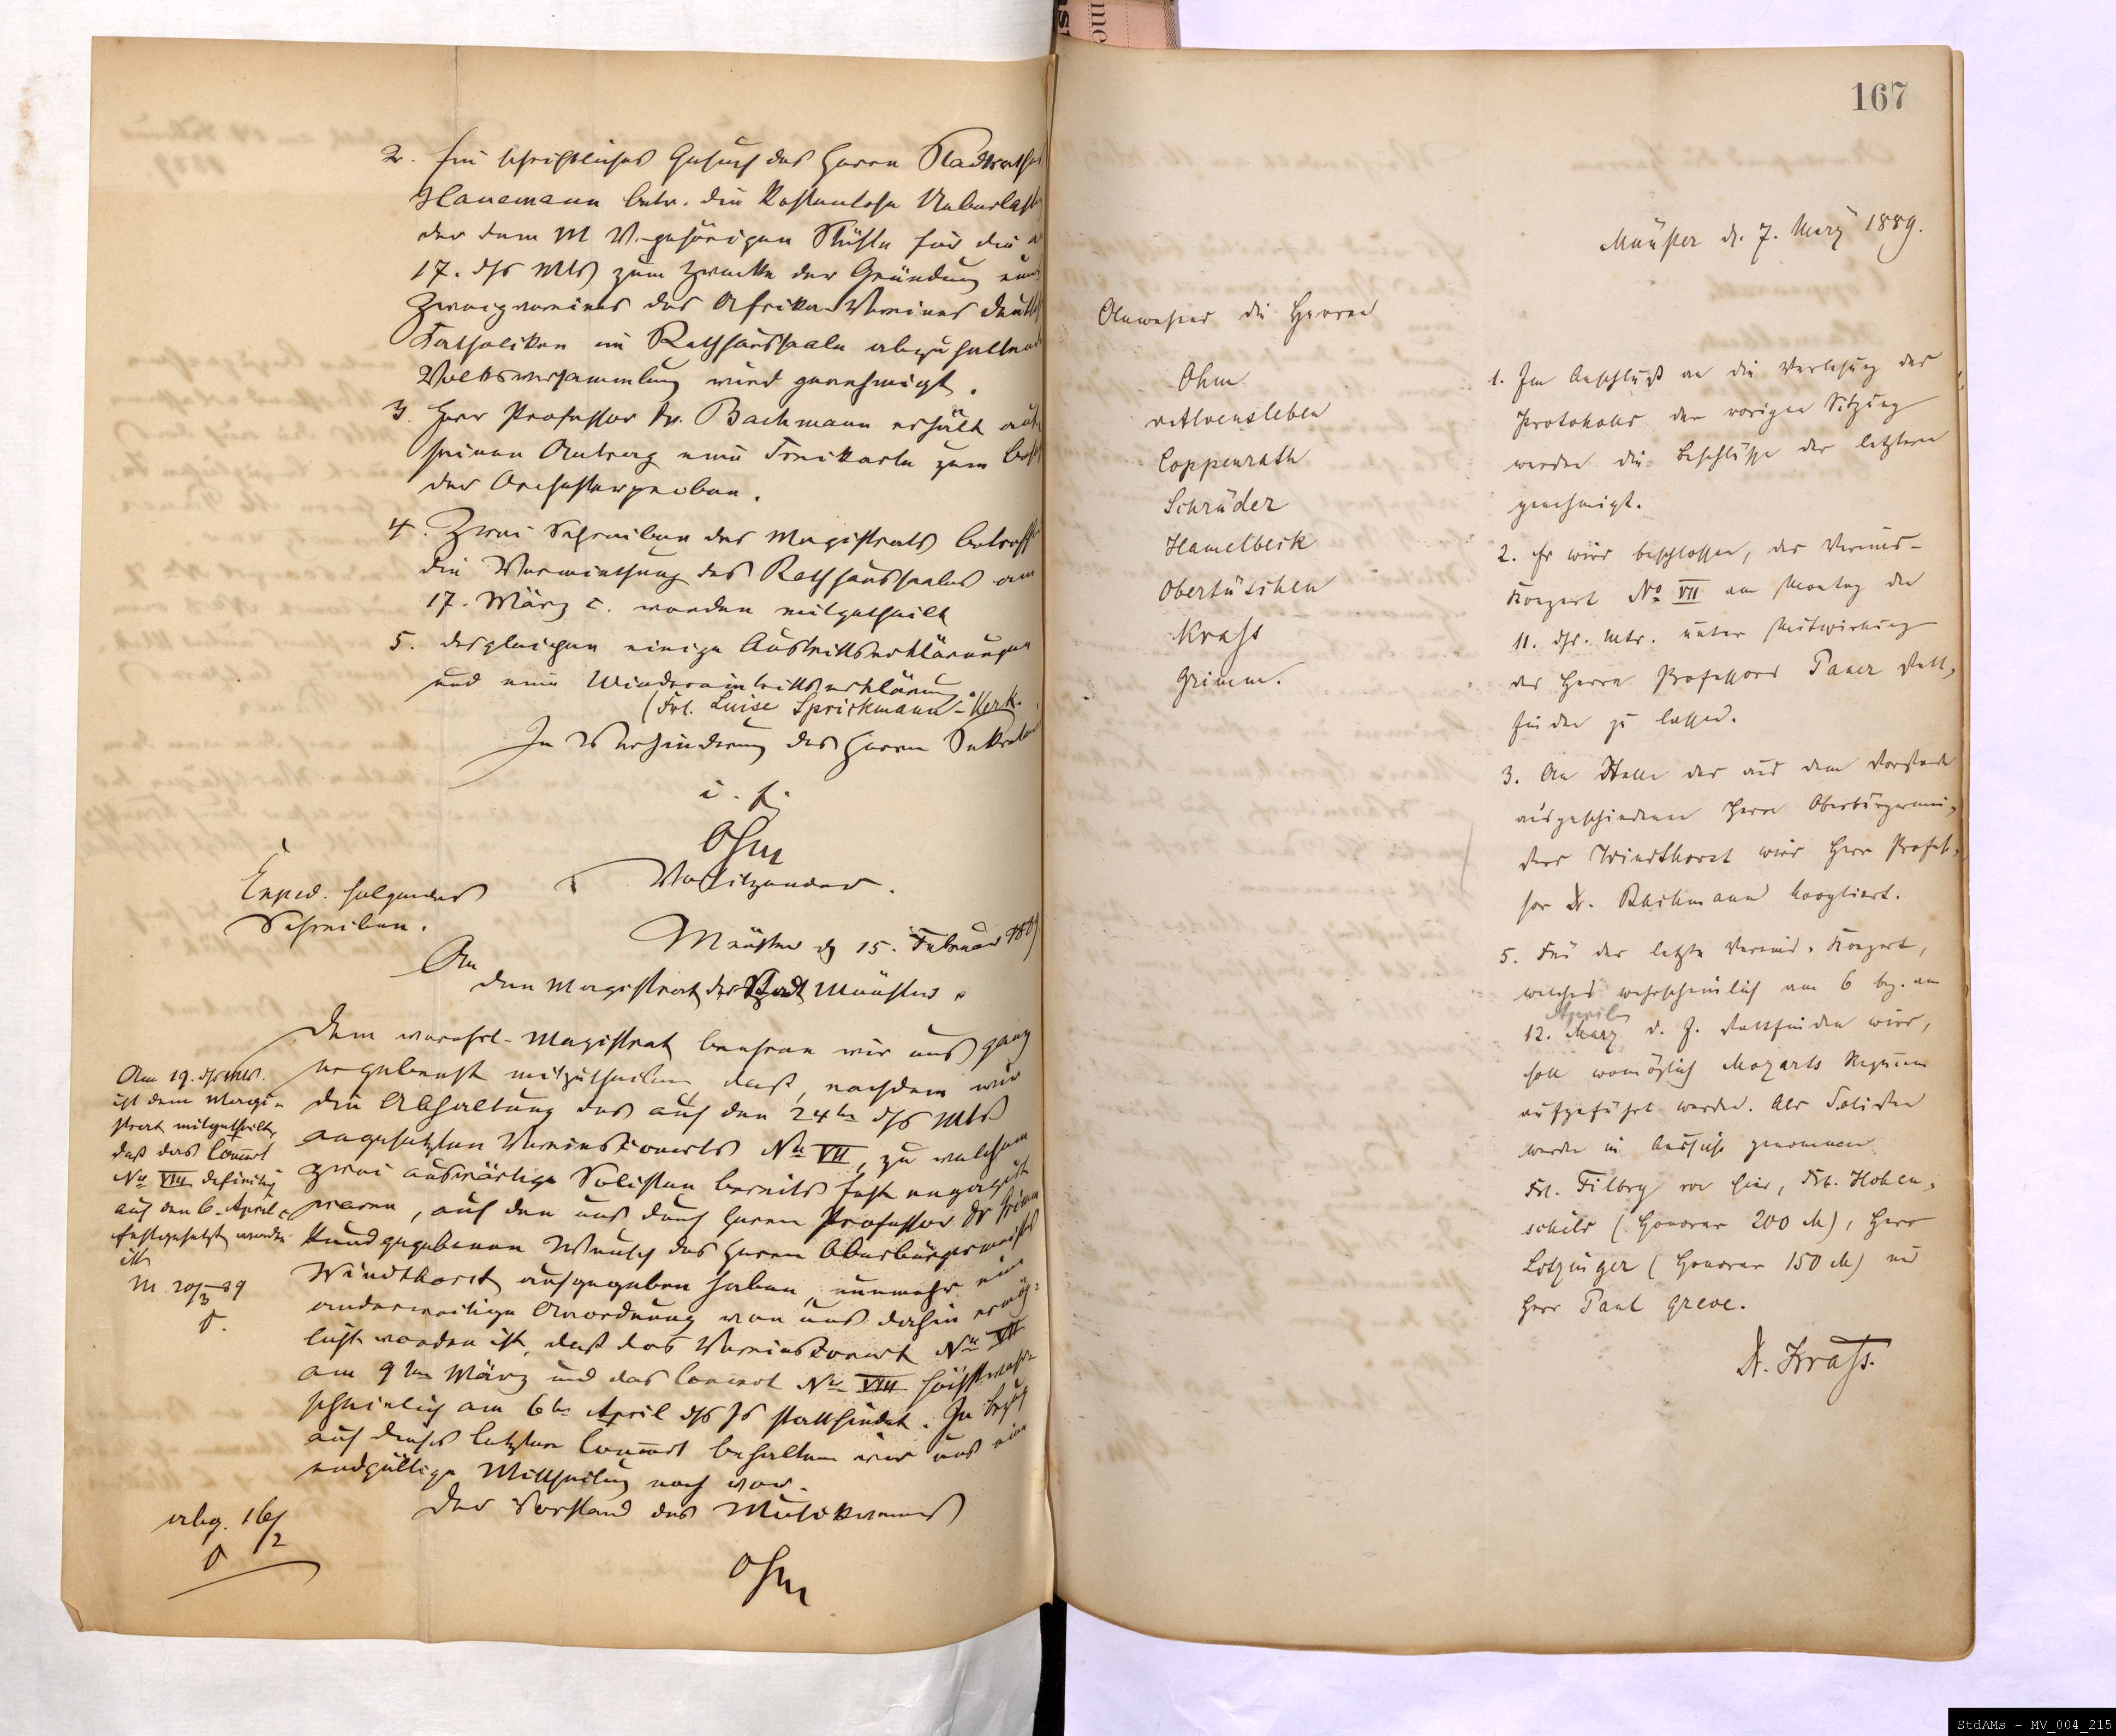 2. Ein schriftliches Gesuch des Herrn Stadtraths
Hanemann betr. die kostenlose Ueberlass
der dem M V. gehörigen Stühle für die a
17. dſs Mts zum Zwecke der Gründung eines
Zweigvereines des Afrika-Vereines deutsch
Katholiken im Rathhaussaale abzuhaltende
Volksversammlung wird genehmigt.
3. Herr Professor Dr. Bachmann erhält auf
seinen Antrag eine Freikarte zum Besuch
der Orchesterproben.
4. Zwei Schreiben des Magistrats betreff
die Vermiethung des Rathhaussaales am
17. März c. werden mitgetheilt
5. desgleichen einige Austrittserklärungen
und eine Wiedereintrittserklärung
(Frl. Luise Sprickmann-Kerk.
In Verhinderung des Herrn Sekretär
Ohm
Vorsitzender.
Exped. folgendes
Schreiben.
Münster d 15. Februar 1889
An
den Magistrat der Stadt Münster.
Dem verehrl. Magistrat beehren wir uns ganz
ergebenst mitzutheilen daß, nachdem wir
die Abhaltung des auf den 24ten dſs Mts
angesetzten Vereinsconcerts No VII, zu welchem
zwei auswärtige Solisten bereits fest engagirt
waren, auf den uns durch Herrn Professor Dr Grimm
kundgegebenen Wunsch des Herrn Oberbürgermeisters
Windthorst aufgegeben haben, nunmehr eine
anderweitige Anordnung von uns dahin ermög-
licht worden ist, daß das Vereinsconcert No VII
am 9ten März und das Concert No VIII höchstwahr-
scheinlich am 6ten April dſs Js stattfindet. In Bezug
auf dieses letztere Concert behalten wir uns eine
endgültige Mittheilung noch vor.
Der Vorstand des Musikvereins
Ohm
Am 19. dſs Mts.
ist dem Magi-
strat mitgetheilt,
daß das Concert
No VIII definitiv
auf den 6. April c
festgesetzt worden
ist
M 20/3 89
O.
abg. 16/2
O
167
Münster d. 7. März 1889.
Anwesend die Herren
Ohm
v Alvensleben
Coppenrath
Schräder
Hamelbeck
Obertüschen
Kraß
Grimm.
1. Im Anschluß an die Verlesung des
Protokolls der vorigen Sitzung
werden die Beschlüsse der letztern
genehmigt.
2. Es wird beschlossen, das Vereins-
Konzert No VII am Montag den
11. dſs. Mts. unter Mitwirkung
des Herrn Professors Pauer statt-
finden zu lassen.
3. An Stelle des aus dem Vorstande
ausgeschiedenen Herrn Oberbürgermei-
sters Windthorst wird Herr Profes-
sor Dr. Bachmann kooptiert.
5. Für das letzte Vereins-Konzert,
welches wahrscheinlich am 6 bez. am
April
12. März d. J. stattfinden wird,
soll womöglich Mozarts Requiem
aufgeführt werden. Als Solisten
werden in Aussicht genommen
Frl. Filbry von hier, Frl. Hohen-
schild (Honorar 200 M), Herr
Lotzinger (Honorar 150 M) und
Herr Paul Greve.
Dr. Kraß.
StdAMs - MV_004_215